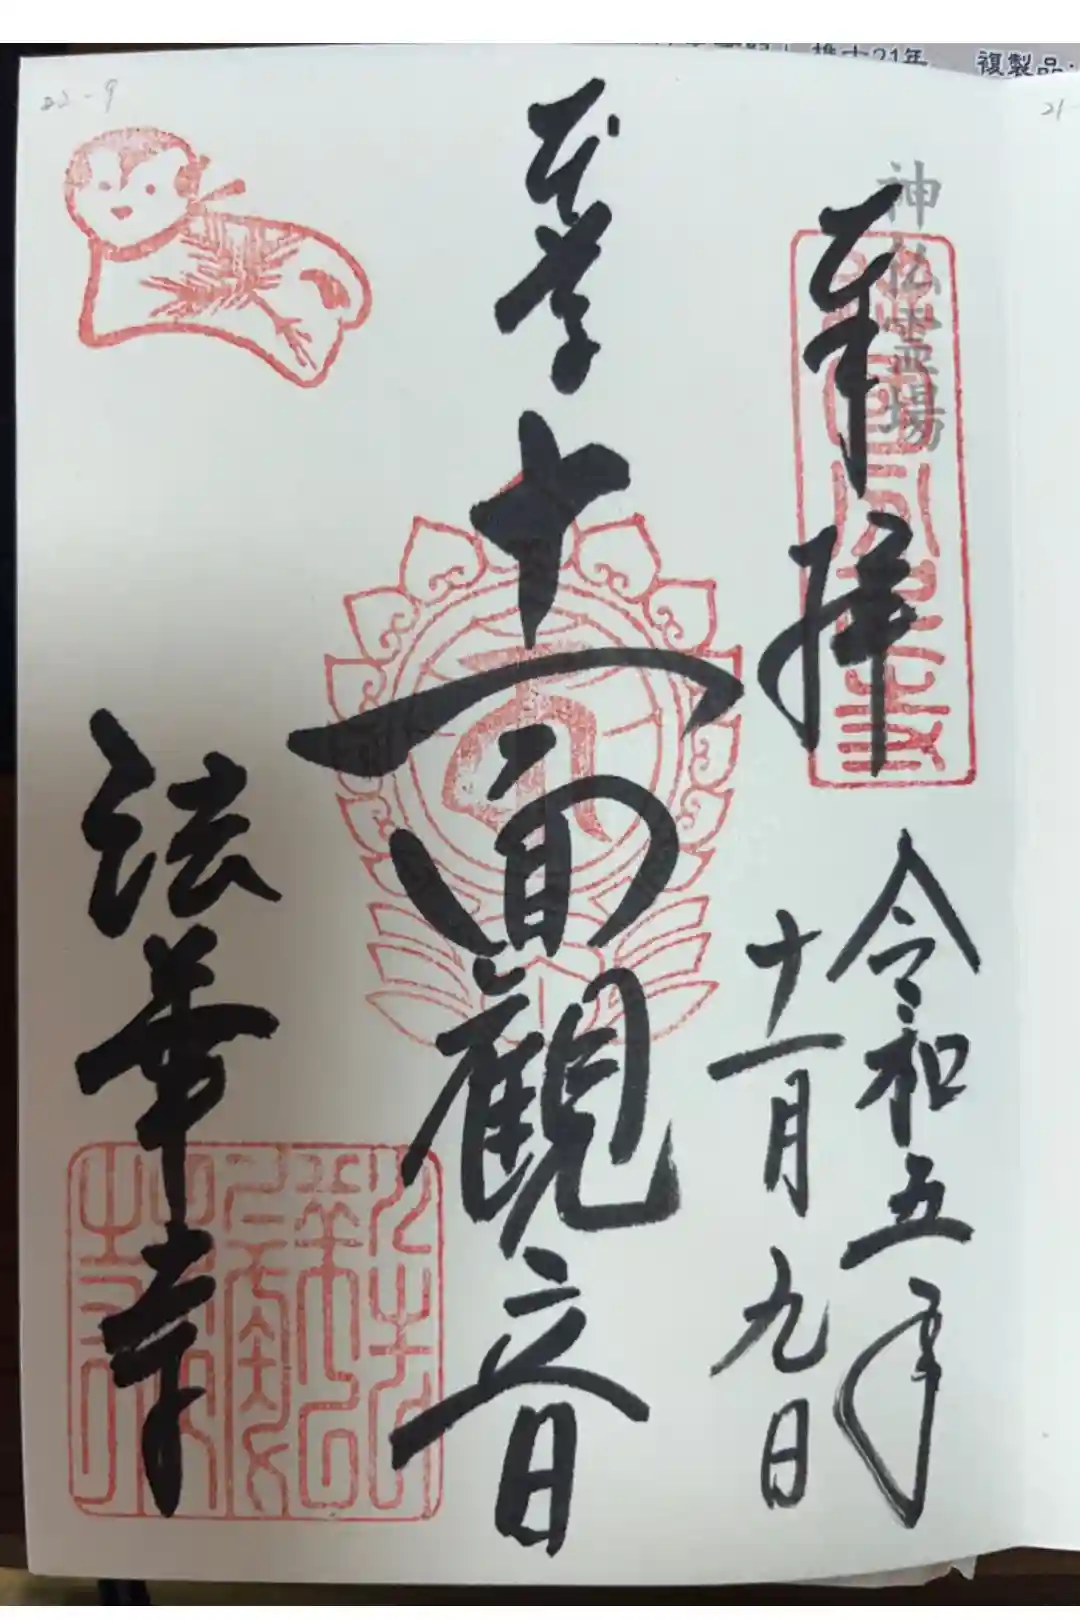 複製品:
21年
22-9
21-
神仏霊場
奉拝
令和五年
十一月九日
本尊
十一面観音
法華寺